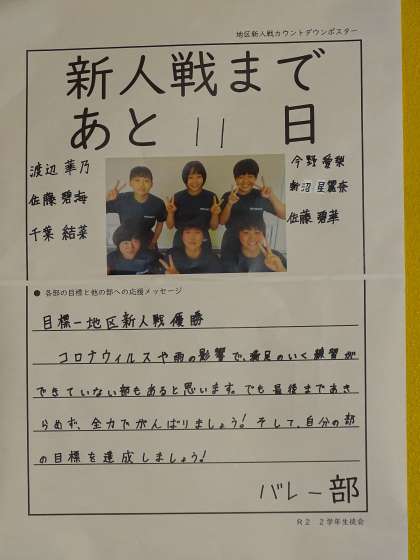 地区新人戦カウントダウンポスター
新人戦まで
あと 11 日
渡辺 華乃
佐藤 碧海
千葉 結菜
今野 愛梨
新沼 星麗奈
佐藤 碧華
● 各部の目標と他の部への応援メッセージ
目標ー地区新人戦優勝
コロナウィルスや雨の影響で、満足のいく練習が
できていない部もあると思います。でも最後まであき
らめず、全力でがんばりましょう！そして、自分の部
の目標を達成しましょう！
バレー部
R２ ２学年生徒会